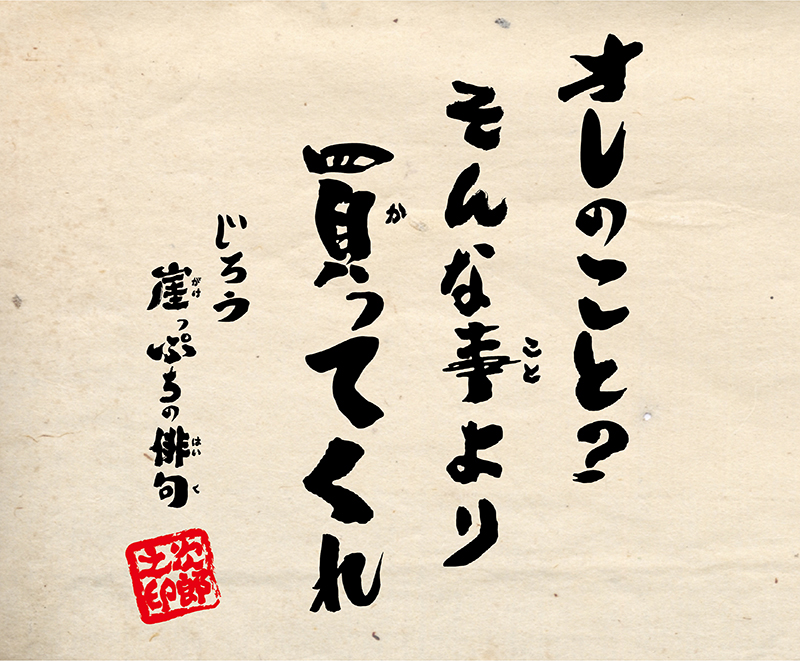 オレのこと?
そんな事より
こと
買ってくれ
か
じろう
崖っぷちの俳句
がけ
はいく
次郎
土印